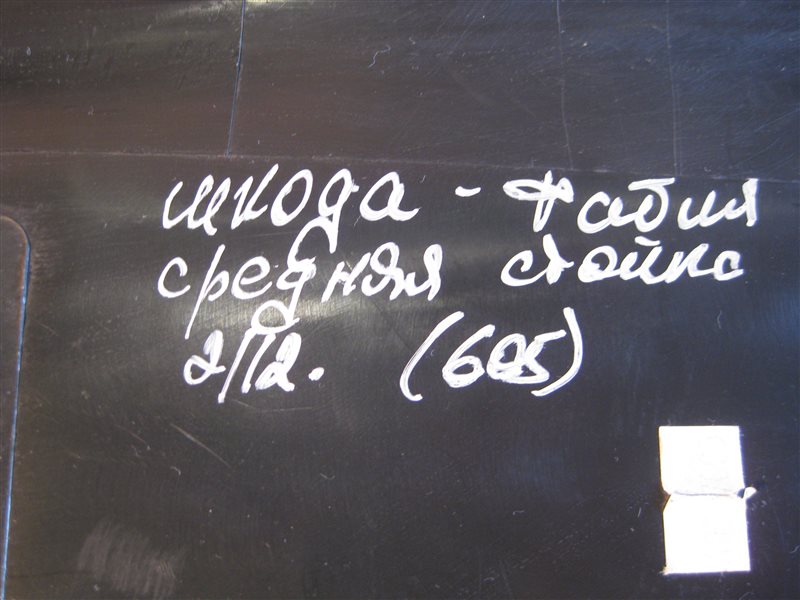 шкода - фабия
средняя стойка
2/12. (605)